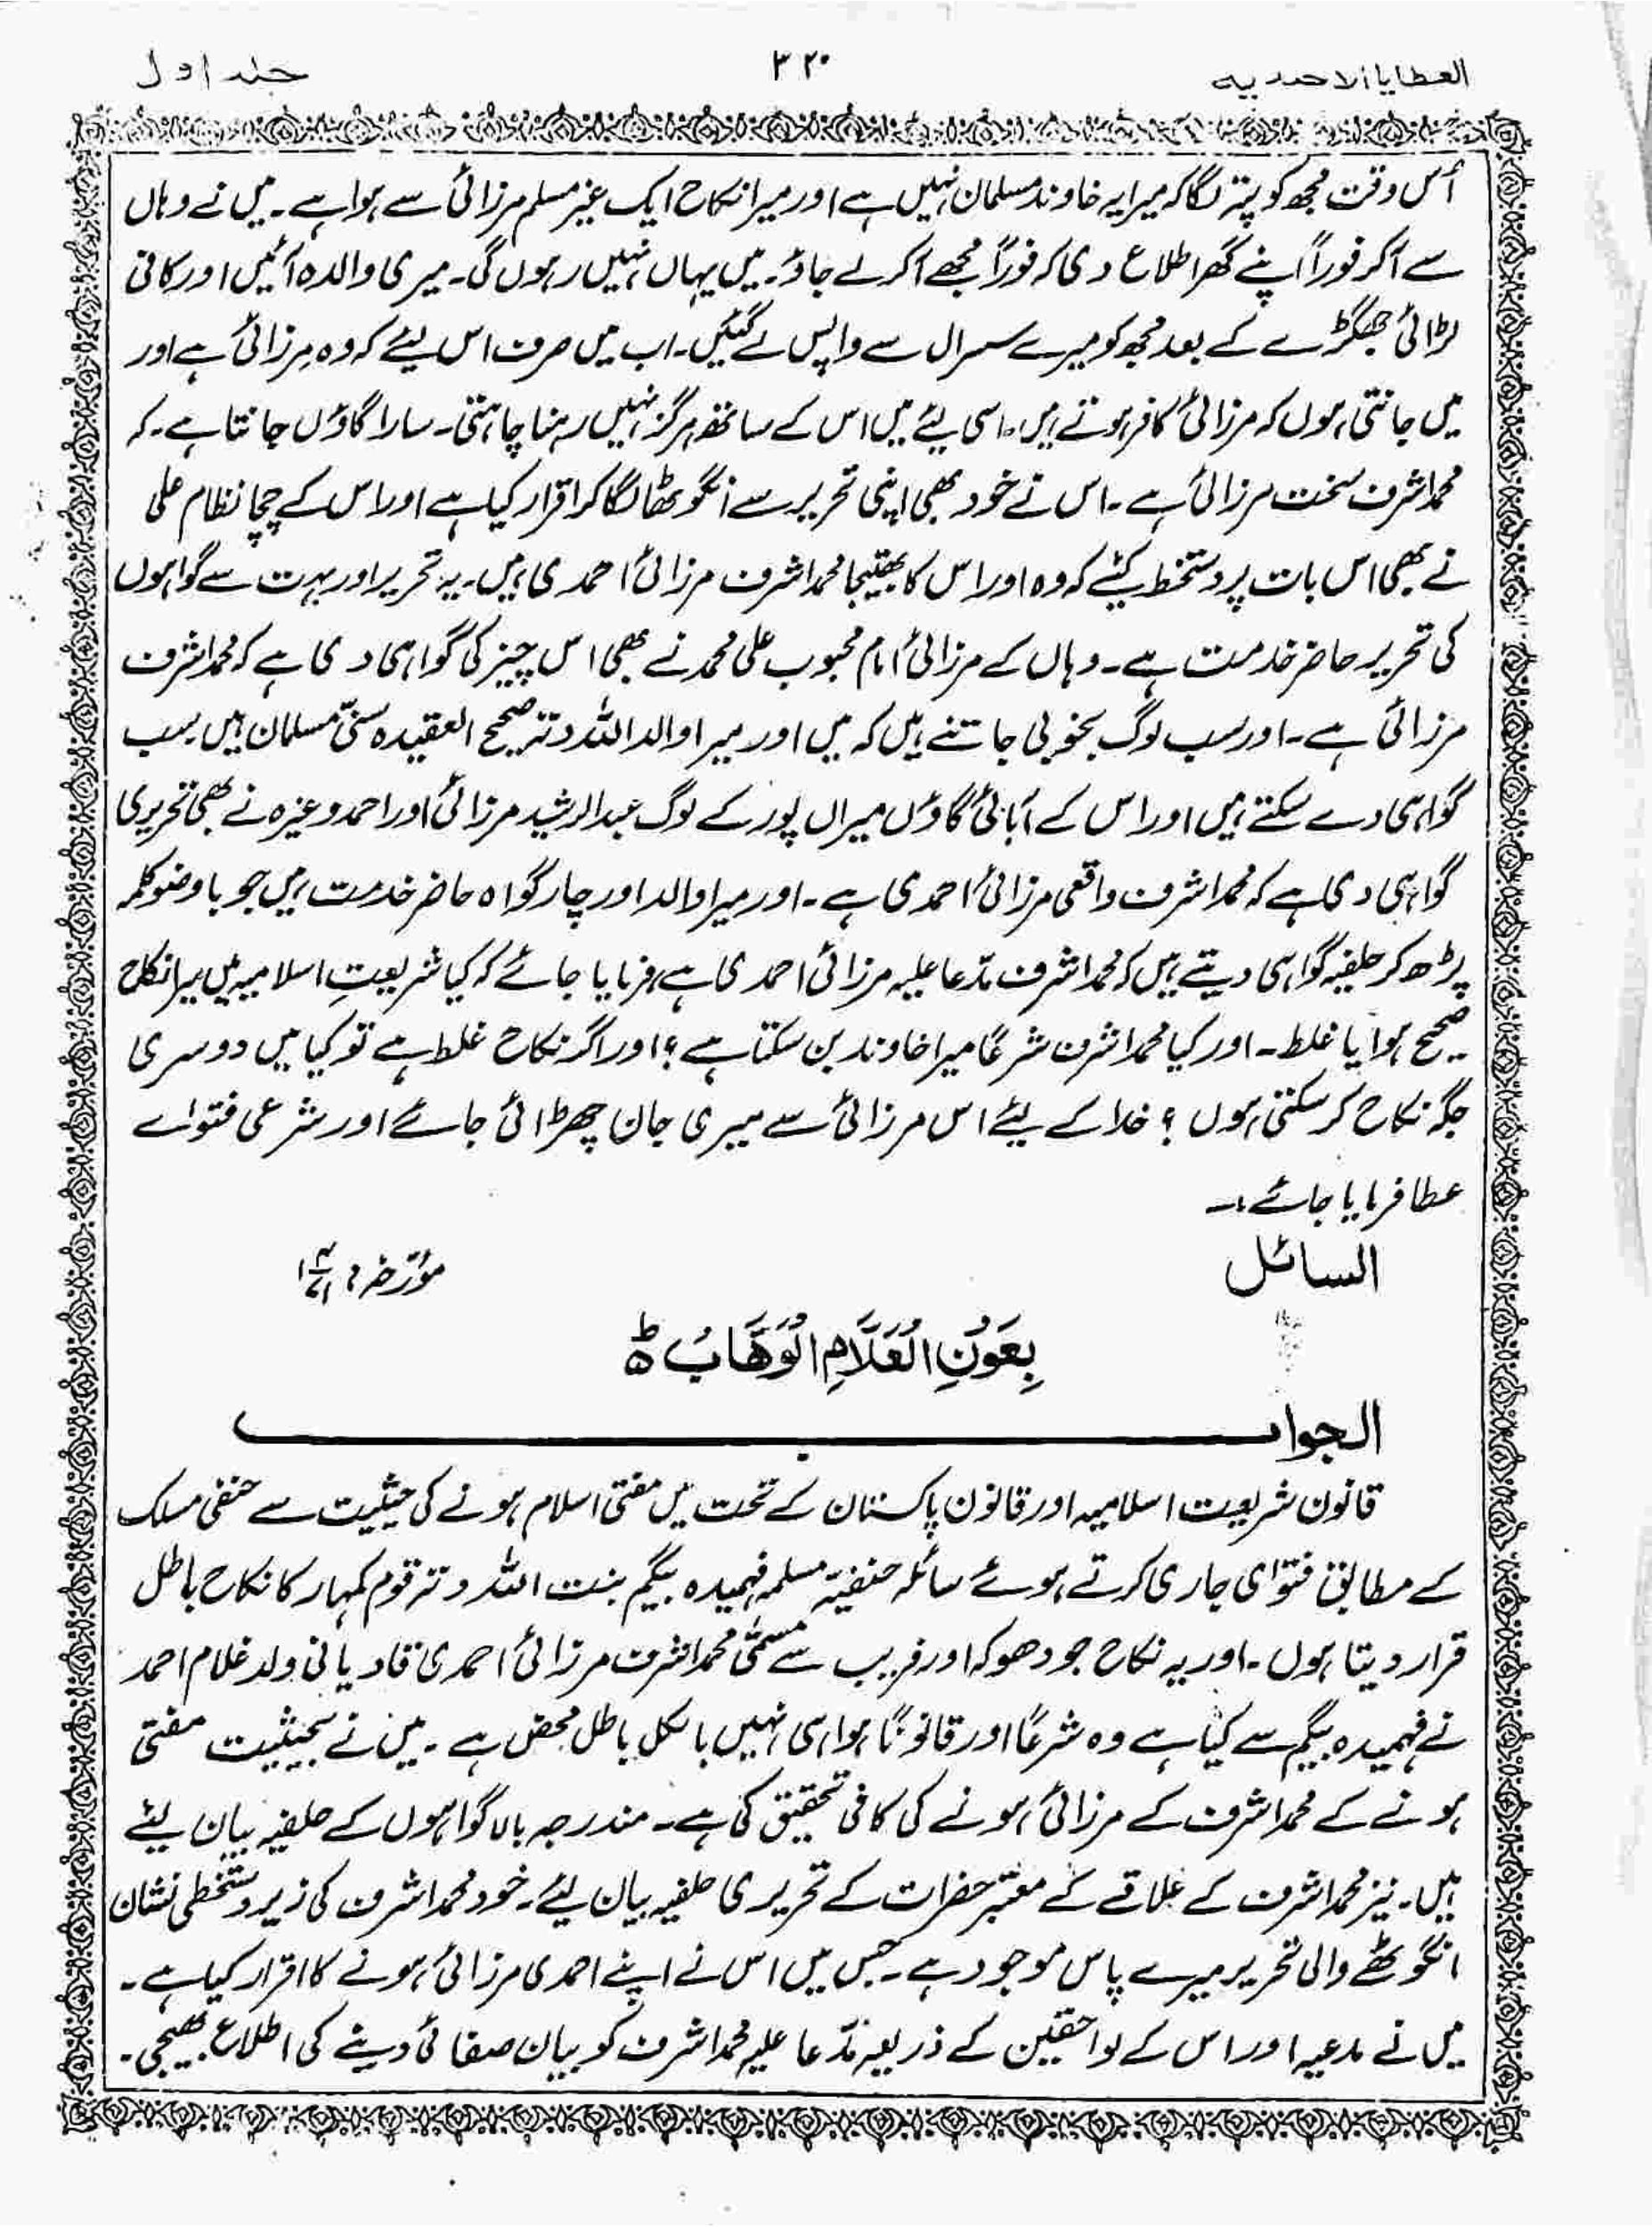 العطایا الاحمدیہ ۳۲۰ جلد اول
اُس وقت مجھ کو پتہ لگا کہ میرا یہ خاوند مسلمان نہیں ہے اور میرا نکاح ایک غیر مسلم مرزائی سے ہوا ہے۔ میں نے وہاں
سے آکر فوراً اپنے گھر اطلاع دی کہ فوراً مجھے آکر لے جاؤ۔ میں یہاں نہیں رہوں گی۔ میری والدہ آئیں اور کافی
لڑائی جھگڑے کے بعد مجھ کو میرے سسرال سے واپس لے گئیں۔ اب میں صرف اس لیئے کہ وہ مرزائی ہے اور
میں جانتی ہوں کہ مرزائی کافر ہوتے ہیں۔ اسی لیئے میں اس کے ساتھ ہرگز نہیں رہنا چاہتی۔ سارا گاؤں جانتا ہے۔ کہ
محمد اشرف سخت مرزائی ہے۔ اس نے خود بھی اپنی تحریر سے انگوٹھا لگا کر اقرار کیا ہے اور اس کے چچا نظام علی
نے بھی اس بات پر دستخط کیئے کہ وہ اور اس کا بھتیجا محمد اشرف مرزائی احمدی ہیں۔ یہ تحریر اور بہت سے گواہوں
کی تحریر حاضر خدمت ہے۔ وہاں کے مرزائی امام محبوب علی محمد نے بھی اس چیز کی گواہی دی ہے کہ محمد اشرف
مرزائی ہے۔ اور سب لوگ بخوبی جانتے ہیں کہ میں اور میرا والد اللہ دتہ صحیح العقیدہ سنّی مسلمان ہیں سب
گواہی دے سکتے ہیں اور اس کے آبائی گاؤں میراں پور کے لوگ عبدالرشید مرزائی اور احمد وغیرہ نے بھی تحریری
گواہی دی ہے کہ محمد اشرف واقعی مرزائی احمدی ہے۔ اور میرا والد اور چار گواہ حاضر خدمت ہیں جو باوضو کلمہ
پڑھ کر حلفیہ گواہی دیتے ہیں کہ محمد اشرف مدّعا علیہ مرزائی احمدی ہے فرمایا جائے کہ کیا شریعتِ اسلامیہ میں میرا نکاح
صحیح ہوا یا غلط۔ اور کیا محمد اشرف شرعًا میرا خاوند بن سکتا ہے ؟ اور اگر نکاح غلط ہے تو کیا میں دوسری
جگہ نکاح کر سکتی ہوں ؟ خدا کے لیئے اس مرزائی سے میری جان چھڑائی جائے اور شرعی فتواے
عطا فرمایا جائے۔
السائل مؤرّخہ
بِعَوْنِ الْعَلَّامِ الْوَهَّابُ ط
الجواب
قانون شریعت اسلامیہ اور قانون پاکستان کے تحت میں مفتی اسلام ہونے کی حیثیت سے حنفی مسلک
کے مطابق فتوٰی جاری کرتے ہوئے سائلہ حنفیہ مسلمہ فہمیدہ بیگم بنت اللہ دتہ قوم کمہار کا نکاح باطل
قرار دیتا ہوں۔ اور یہ نکاح جو دھوکہ اور فریب سے مسمّٰی محمد اشرف مرزائی احمدی قادیانی ولد غلام احمد
نے فہمیدہ بیگم سے کیا ہے وہ شرعًا اور قانونًا ہوا ہی نہیں بالکل باطل محض ہے۔ میں نے بحیثیت مفتی
ہونے کے محمد اشرف کے مرزائی ہونے کی کافی تحقیق کی ہے۔ مندرجہ بالا گواہوں کے حلفیہ بیان لیئے
ہیں۔ نیز محمد اشرف کے علاقے کے معتبر حضرات کے تحریری حلفیہ بیان لیئے۔ خود محمد اشرف کی زیر دستخطی نشان
انگوٹھے والی تحریر میرے پاس موجود ہے۔ جس میں اس نے اپنے احمدی مرزائی ہونے کا اقرار کیا ہے۔
میں نے مدعیہ اور اس کے لواحقین کے ذریعہ مدّعا علیہ محمد اشرف کو بیان صفائی دینے کی اطلاع بھیجی۔